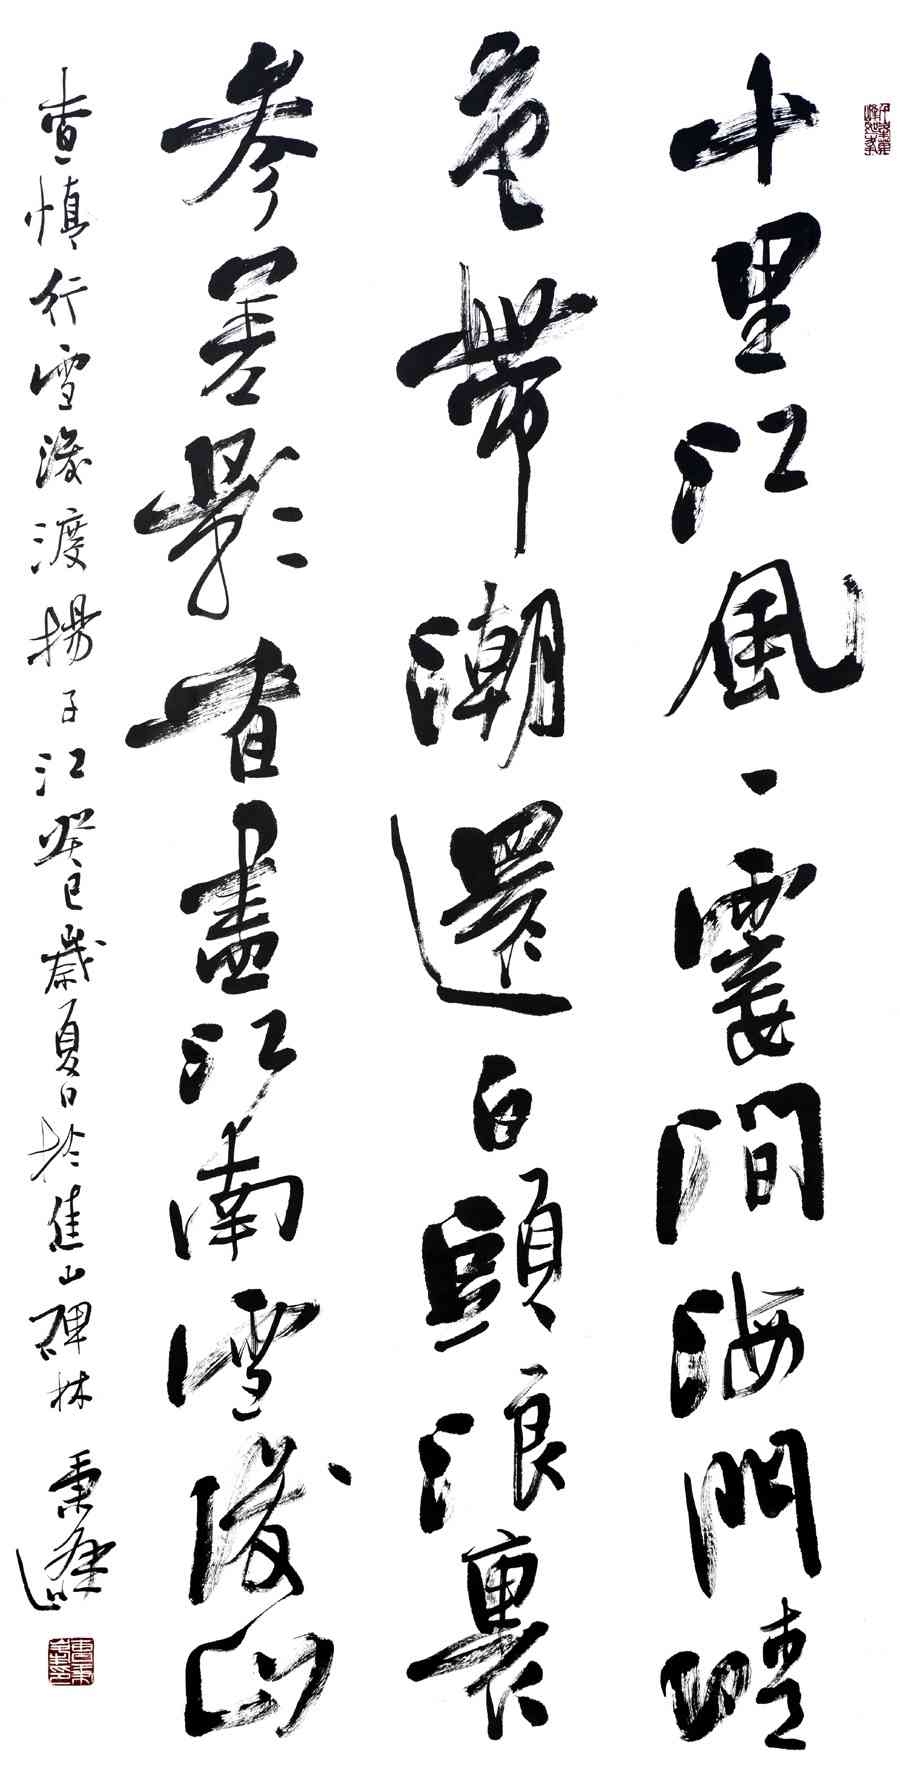 十里江風一霎間海門晴
色帶潮還白頭浪裏
参差影看盡江南雪後山
查慎行雪後渡揚子江癸巳歲夏日於焦山碑林 秉